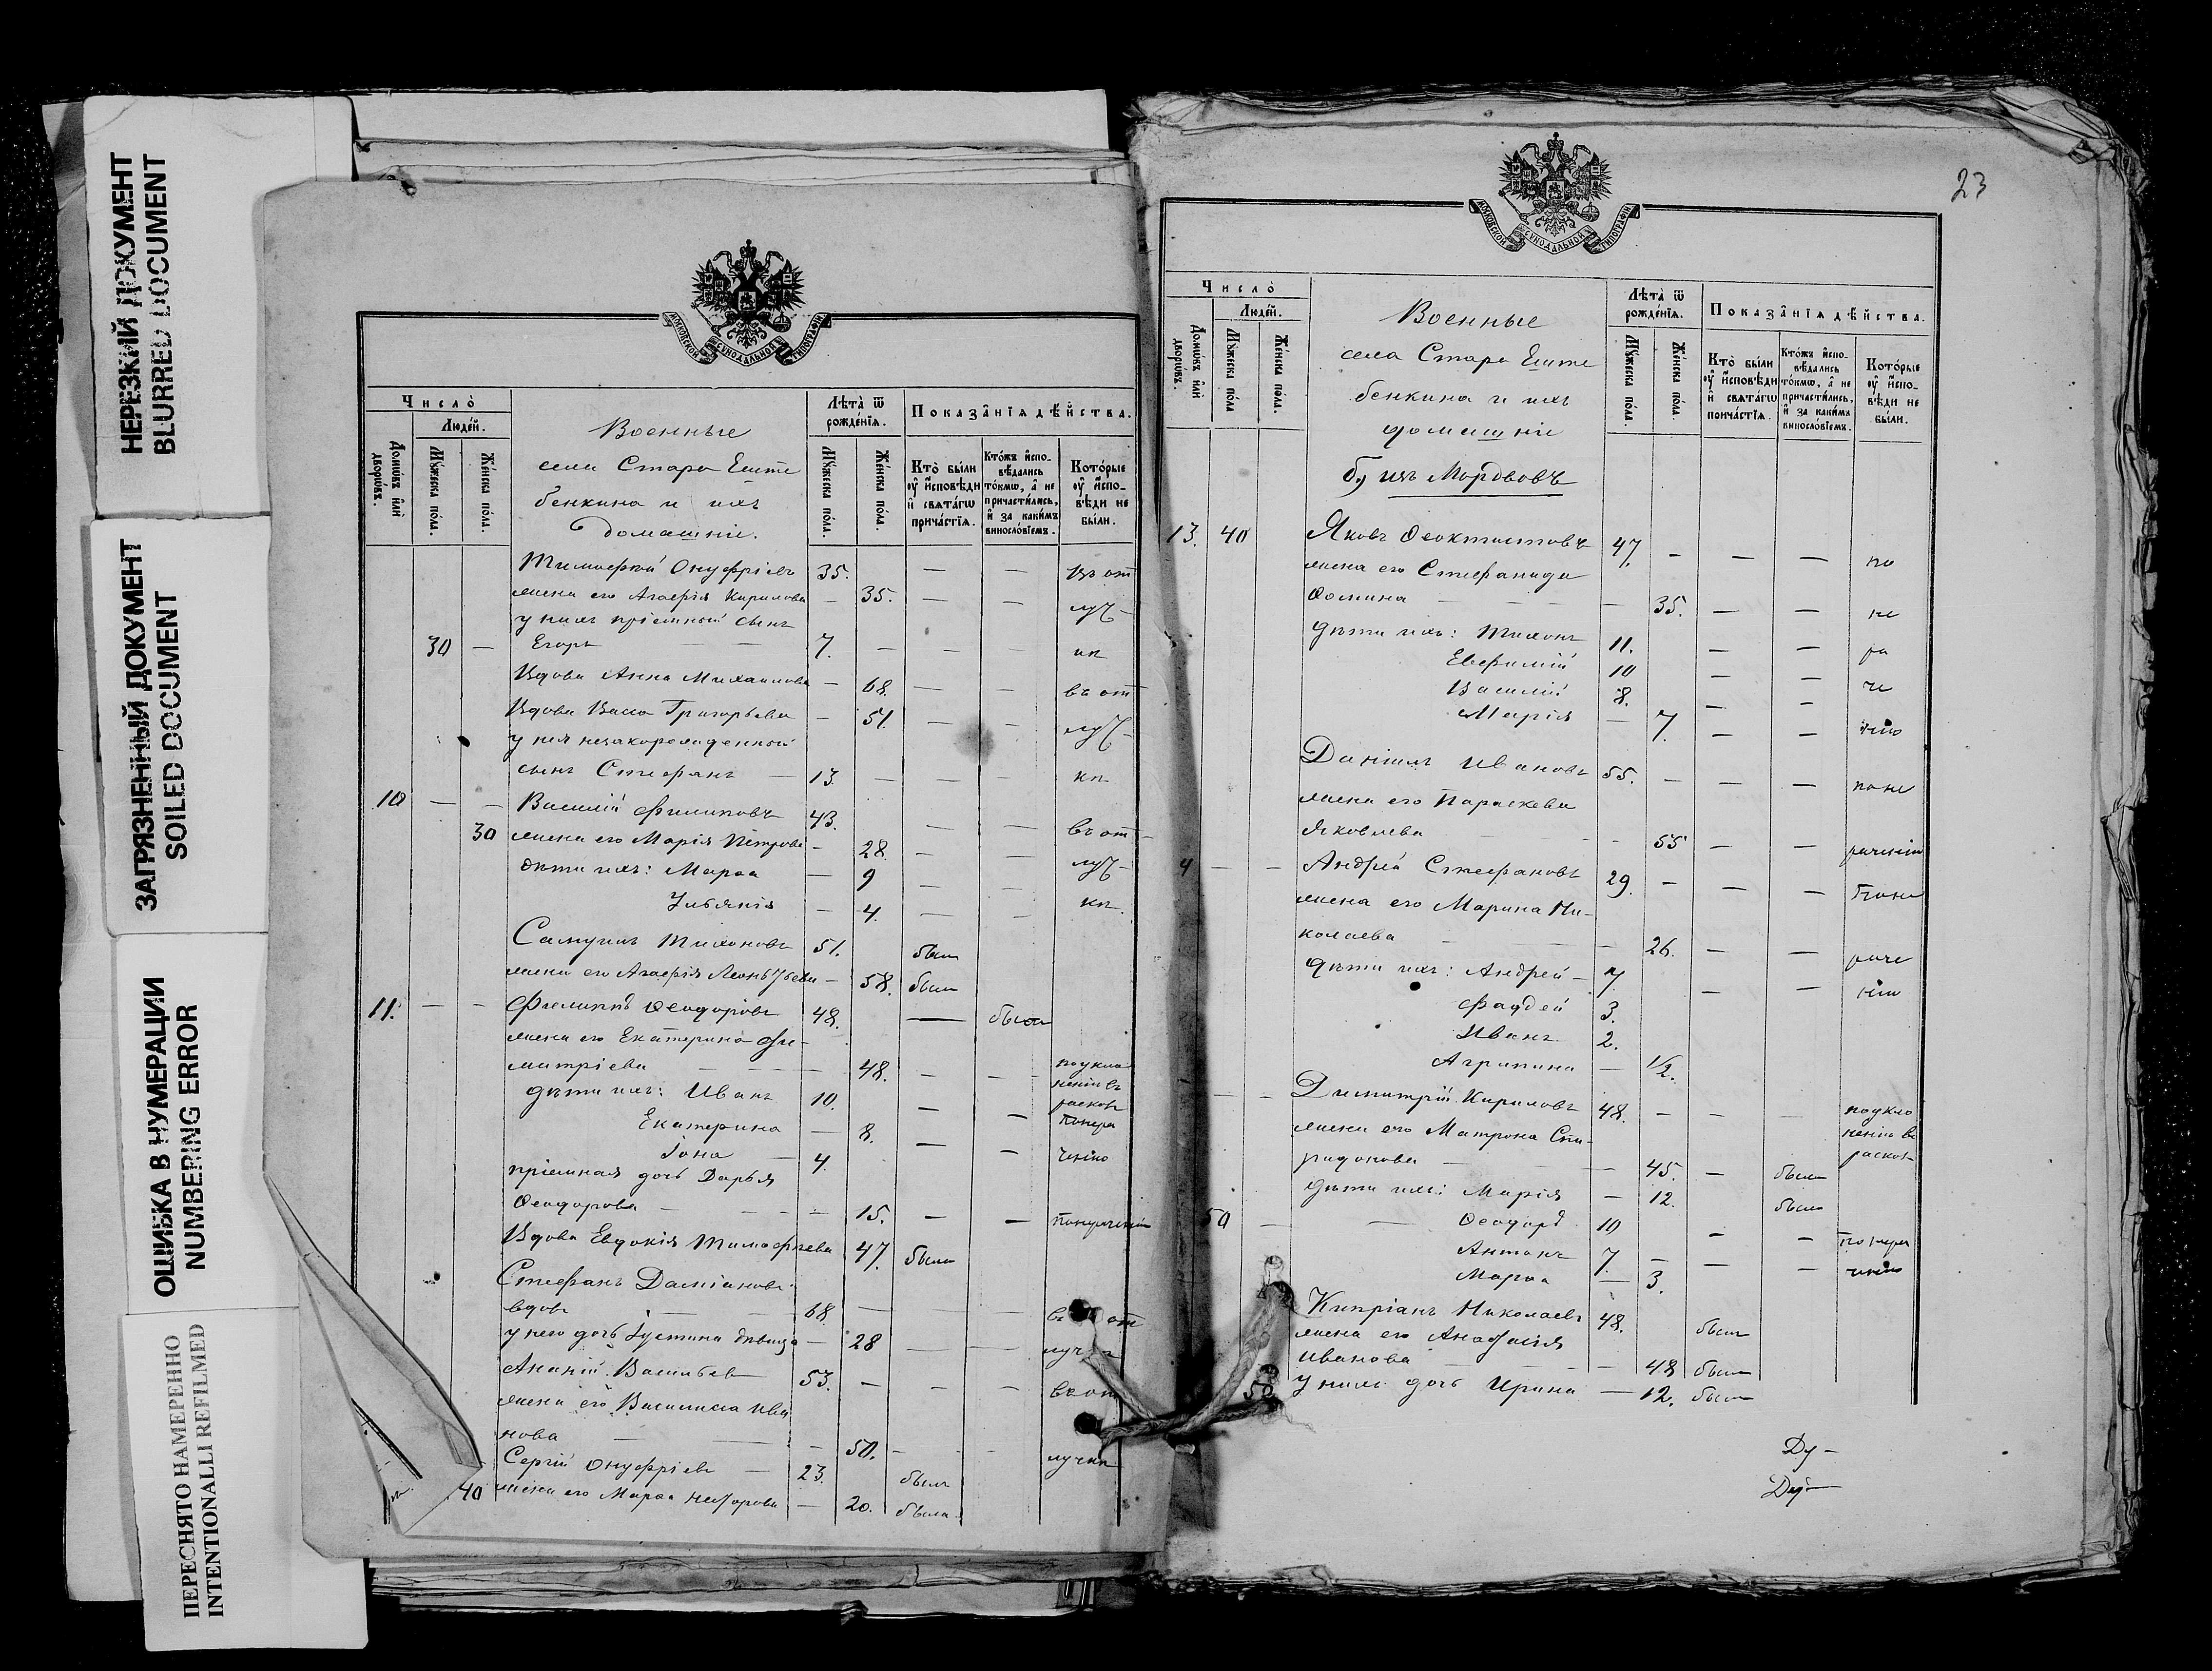 НЕРЕЗКИЙ ДОКУМЕНТ
BLURRED DOCUMENT
ЗАГРЯЗНЕННЫЙ ДОКУМЕНТ
SOILED DOCUMENT
ОШИБКА В НУМЕРАЦИИ
NUMBERING ERROR
ПЕРЕСНЯТО НАМЕРЕННО
INTENTIONALLI REFILMED
МОСКОВСКОЙ СѴНОДАЛЬНОЙ ТИПОГРАФІИ
Число̀
Людей.
Домѡвъ и҆лѝ дворѡвъ.
Мꙋ́жеска по́ла
Же́нска по́ла.
Военные
села Старо Еште
бенкина и ихъ
домашніе.
Лѣта̀ ѿ рожде́нїѧ.
Мꙋ́жеска по́ла.
Же́нска по́ла.
Показа̂нїѧ дѣ́йства.
Кто̀ бы́ли
ᲂу҆ и҆сповѣ́ди
и҆ свѧта́гѡ
прича́стїѧ.
Кто́жъ и҆спо-
вѣ́дались
то́кмѡ, а҆ не
причасти́лись,
и҆ за каки́мъ
винослóвїемъ.
Кото́рые
ᲂу҆ и҆спо-
вѣ́ди не
бы́ли.
Тимофей Онуфріевъ 35. — — въ от
жена его Агафія Кирилова — 35. — — луч-
у нихъ пріемный сынъ
30 — Егоръ — — 7. — — — кѣ
Вдова Анна Михаилова — 68. — — въ от
Вдова Васса Григорьева — 51. — — луч-
у нея незаконрожденный
сынъ Стефанъ — 13. — — — кѣ
10 — — Василій Филиповъ 43. — — въ от-
30 жена его Марія Петрова — 28. — — луч-
дѣти ихъ: Марѳа — 9 — — кѣ.
Ульянія — 4. — —
Самуилъ Тихоновъ 51. былъ
жена его Агафія Леонтьева — 58. была
11. — — Филиппъ Ѳеодоровъ 48. — былъ
жена его Екатерина Ди-
митріева — — — 48. — — по укло
дѣти ихъ: Иванъ 10. — — ненію въ
расколъ
Екатерина — 8. — — по нера
Іона — 4. ченію
пріемная дочь Дарья
Ѳеодорова — — — 15. — — по нераченію
Вдова Евдокія Тимофеева 47. была
Стефанъ Даміановъ
вдовъ — — 68. — — въ от
у него дочь Іустина дѣвица — 28 — — лучкѣ
Ананій Васильевъ 53. — — — въ от
жена его Василисса Ива
нова — — — 50. — — лучкѣ
Сергій Онуфріевъ — 23. былъ
40 жена его Марѳа — 20. была
23
МОСКОВСКОЙ СѴНОДАЛЬНОЙ ТИПОГРАФІИ
Число̀
Людей.
Домѡвъ и҆лѝ дворѡвъ.
Мꙋ́жеска по́ла
Же́нска по́ла.
Военные
села Старо Еште
бенкина и ихъ
домашніе
б) изъ Мордовъ
Лѣта̀ ѿ рожде́нїѧ.
Мꙋ́жеска по́ла.
Же́нска по́ла.
Показа̂нїѧ дѣ́йства.
Кто̀ бы́ли
ᲂу҆ и҆сповѣ́ди
и҆ свѧта́гѡ
прича́стїѧ.
Кто́жъ и҆спо-
вѣ́дались
то́кмѡ, а҆ не
причасти́лись,
и҆ за каки́мъ
винослóвїемъ.
Кото́рые
ᲂу҆ и҆спо-
вѣ́ди не
бы́ли.
13. 40 Яковъ Ѳеоктистовъ 47. — — — по
жена его Стефанида
Ѳомина — — — 35. — — не
дѣти ихъ: Тихонъ 11. — — ра
Евфимій 10 — — че
Василій 8. — —
Марія — 7. — — нію
Даніилъ Ивановъ 55. — — — по не
жена его Параскева
Яковлева — — 55 — — раченію
4 — — Андрей Стефановъ 29. — — — По не
жена его Марина Ни-
колаева — — — 26. — — раче
дѣти ихъ: Андрей — 7 — — нію
Фаддей 3.
Иванъ 2.
Агрипина — 1/2.
— — Димитрій Кириловъ 48. — — — по укло
жена его Матрона Спи- ненію въ
ридонова — — — 45. — была расколъ
дѣти ихъ: Марія — 12. была
50 — — Ѳеодоръ 10 — — по нера
Антонъ 7. — — — ченію
Марѳа — 3.
Кипріанъ Николаевъ 48. былъ
жена его Анастасія
Иванова — — — 48 была
50 у нихъ дочь Ирина — 12. была
Ду-